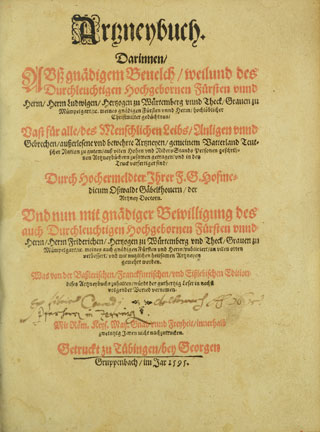 Artzneybuch.
Darinnen/
Auß gnädigem Beuelch/ weilund des
Durchleuchtigen Hochgebornen Fürsten vnnd
Herrn/ Herrn Ludwigen/ Hertzogen zu Würtemberg vnnd Theck/ Grauen zu
Mümpelgart/ꝛc. meines gnädigen Fürsten vnnd Herrn/ hochlöblicher
Christmilter gedächtnus/
Vast für alle/ des Menschlichen Leibs/ Anligen vnnd
Gebrechen/ außerlesene vnd bewehrte Artzneyen/ gemeinem Vatterland Teut-
scher Nation zu gutem/ auß vilen Hohen vnd Nidern Stands Personen geschrib-
nen Artzneybüchern zusamen getragen/ vnd in den
Truck verfertiget sind/
Durch Hochermeldter Ihrer F. G. Hofme-
dicum Oßwaldt Gäbelkhouern/ der
Artzney Doctorn.
Vnd nun mit gnädiger Bewilligung des
auch Durchleuchtigen Hochgebornen Fürsten vnnd
Herrn/ Herrn Friderichen/ Hertzogen zu Würtemberg vnd Theck/ Grauen zu
Mümpelgart/ꝛc. meines auch gnädigen Fürsten vnd Herrn/ publiciert/ an vilen orten
verbessert/ vnd mit nutzlichen heilsamen Artzneyen
gemehret worden.
Was von der Baßlerischen/ Franckfortischen/ vnd Eißlebischen Edition
dises Artzneybuchs zuhalten/ würdt der gutherzig Leser in nechst
volgender Vorred vernemen.
Mit Röm. Keys. May. Gnad vnnd Freyheit/ innerhalb
zweintzig Jaren nicht nachzutrucken.
Getruckt zu Tübingen/ bey Georgen
Gruppenbach/ im Jar 1595.